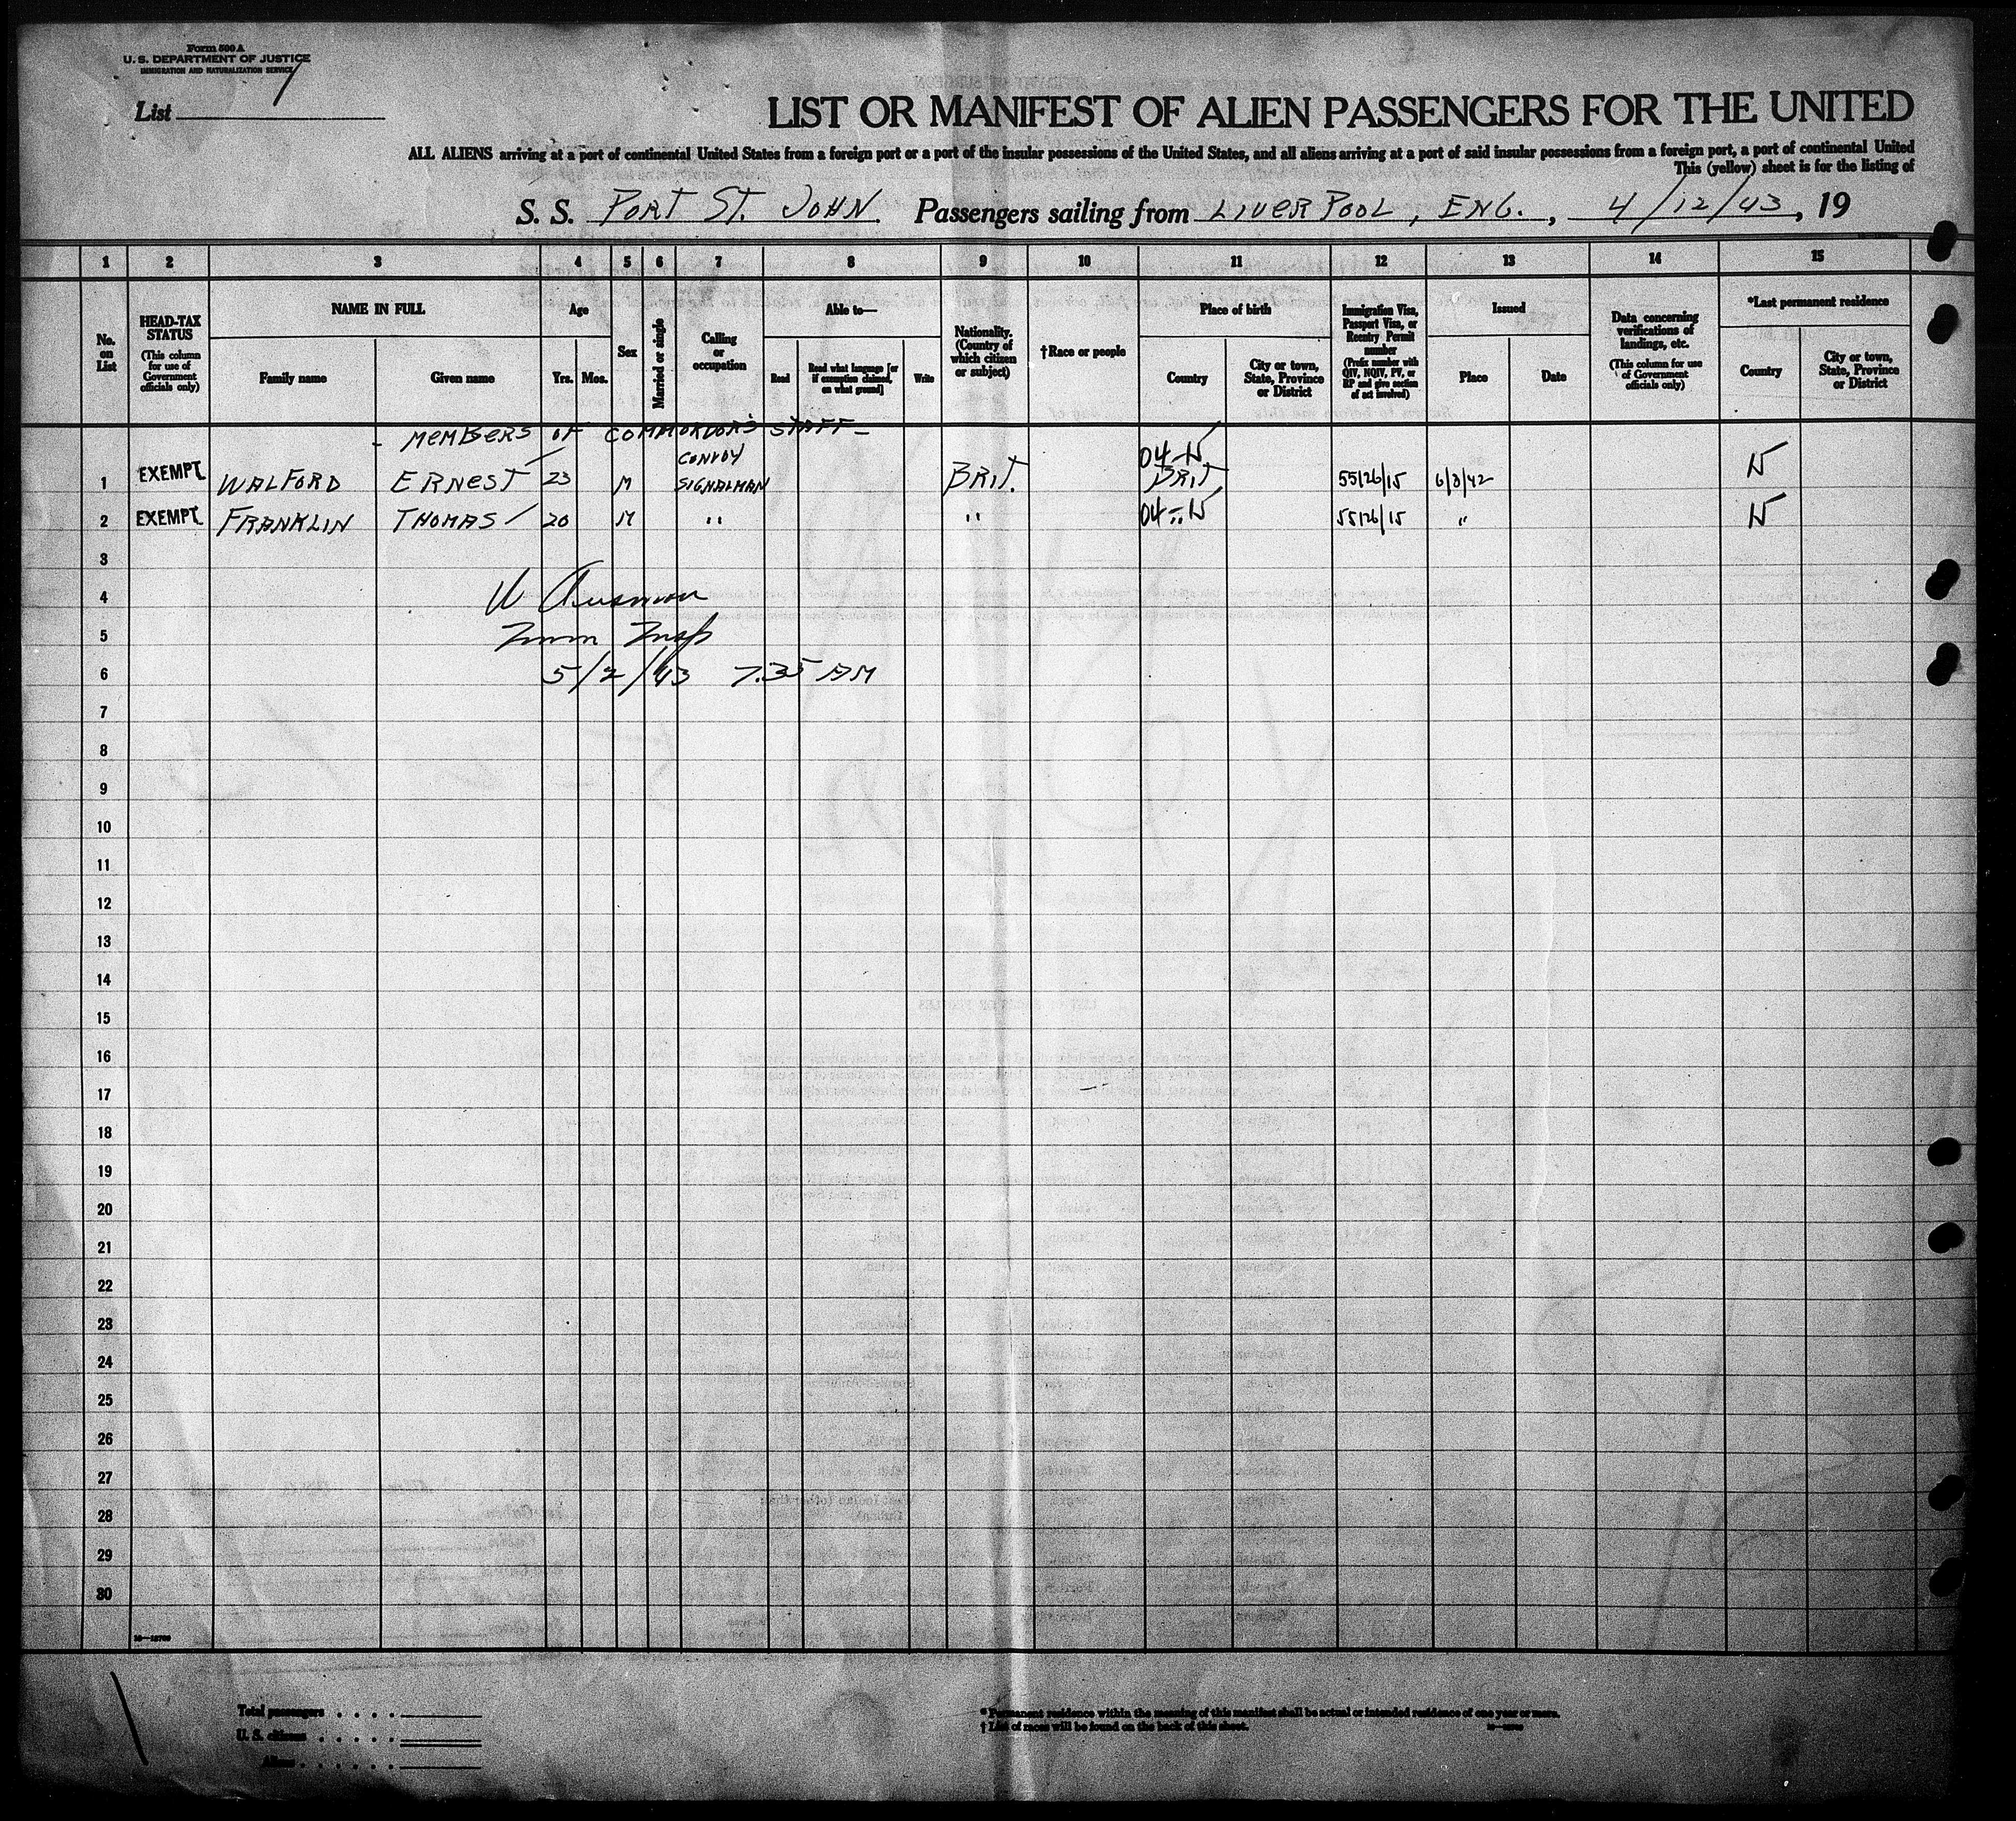 Form 500 A
U. S. DEPARTMENT OF JUSTICE
IMMIGRATION AND NATURALIZATION SERVICE
List
LIST OR MANIFEST OF ALIEN PASSENGERS FOR THE UNITED
ALL ALIENS arriving at a port of continental United States from a foreign port or a port of the insular possessions of the United States, and all aliens arriving at a port of said insular possessions from a foreign port, a port of continental United
This (yellow) sheet is for the listing of
S. S. PORT ST. JOHN Passengers sailing from LIVERPOOL, ENG., 4/12/43, 19
1 2 3 4 5 6 7 8 9 10 11 12 13 14 15
No. on List
HEAD-TAX STATUS (This column for use of Government officials only)
NAME IN FULL
Family name
Given name
Age
Yrs.
Mos.
Sex
Married or single
Calling or occupation
Able to—
Read
Read what language [or if exemption claimed, on what ground]
Write
Nationality. (Country of which citizen or subject)
†Race or people
Place of birth
Country
City or town, State, Province or District
Immigration Visa, Passport Visa, or Reentry Permit number (Prefix number with QIV, NQIV, PV, or RP and give section of act involved)
Issued
Place
Date
Data concerning verifications of landings, etc. (This column for use of Government officials only)
*Last permanent residence
Country
City or town, State, Province or District
- MEMBERS OF COMMODORS STAFF -
1 EXEMPT WALFORD ERNEST 23 M CONVOY SIGNALMAN BRIT. BRIT 55126/15 6/8/42
2 EXEMPT FRANKLIN THOMAS 20 M " " " 55126/15 "
3
4
5 Imm Insp
6 5/2/43 7.35 AM
7
8
9
10
11
12
13
14
15
16
17
18
19
20
21
22
23
24
25
26
27
28
29
30
Total passengers
U. S. citizens
Aliens
* Permanent residence within the meaning of this manifest shall be actual or intended residence of one year or more.
† List of races will be found on the back of this sheet.